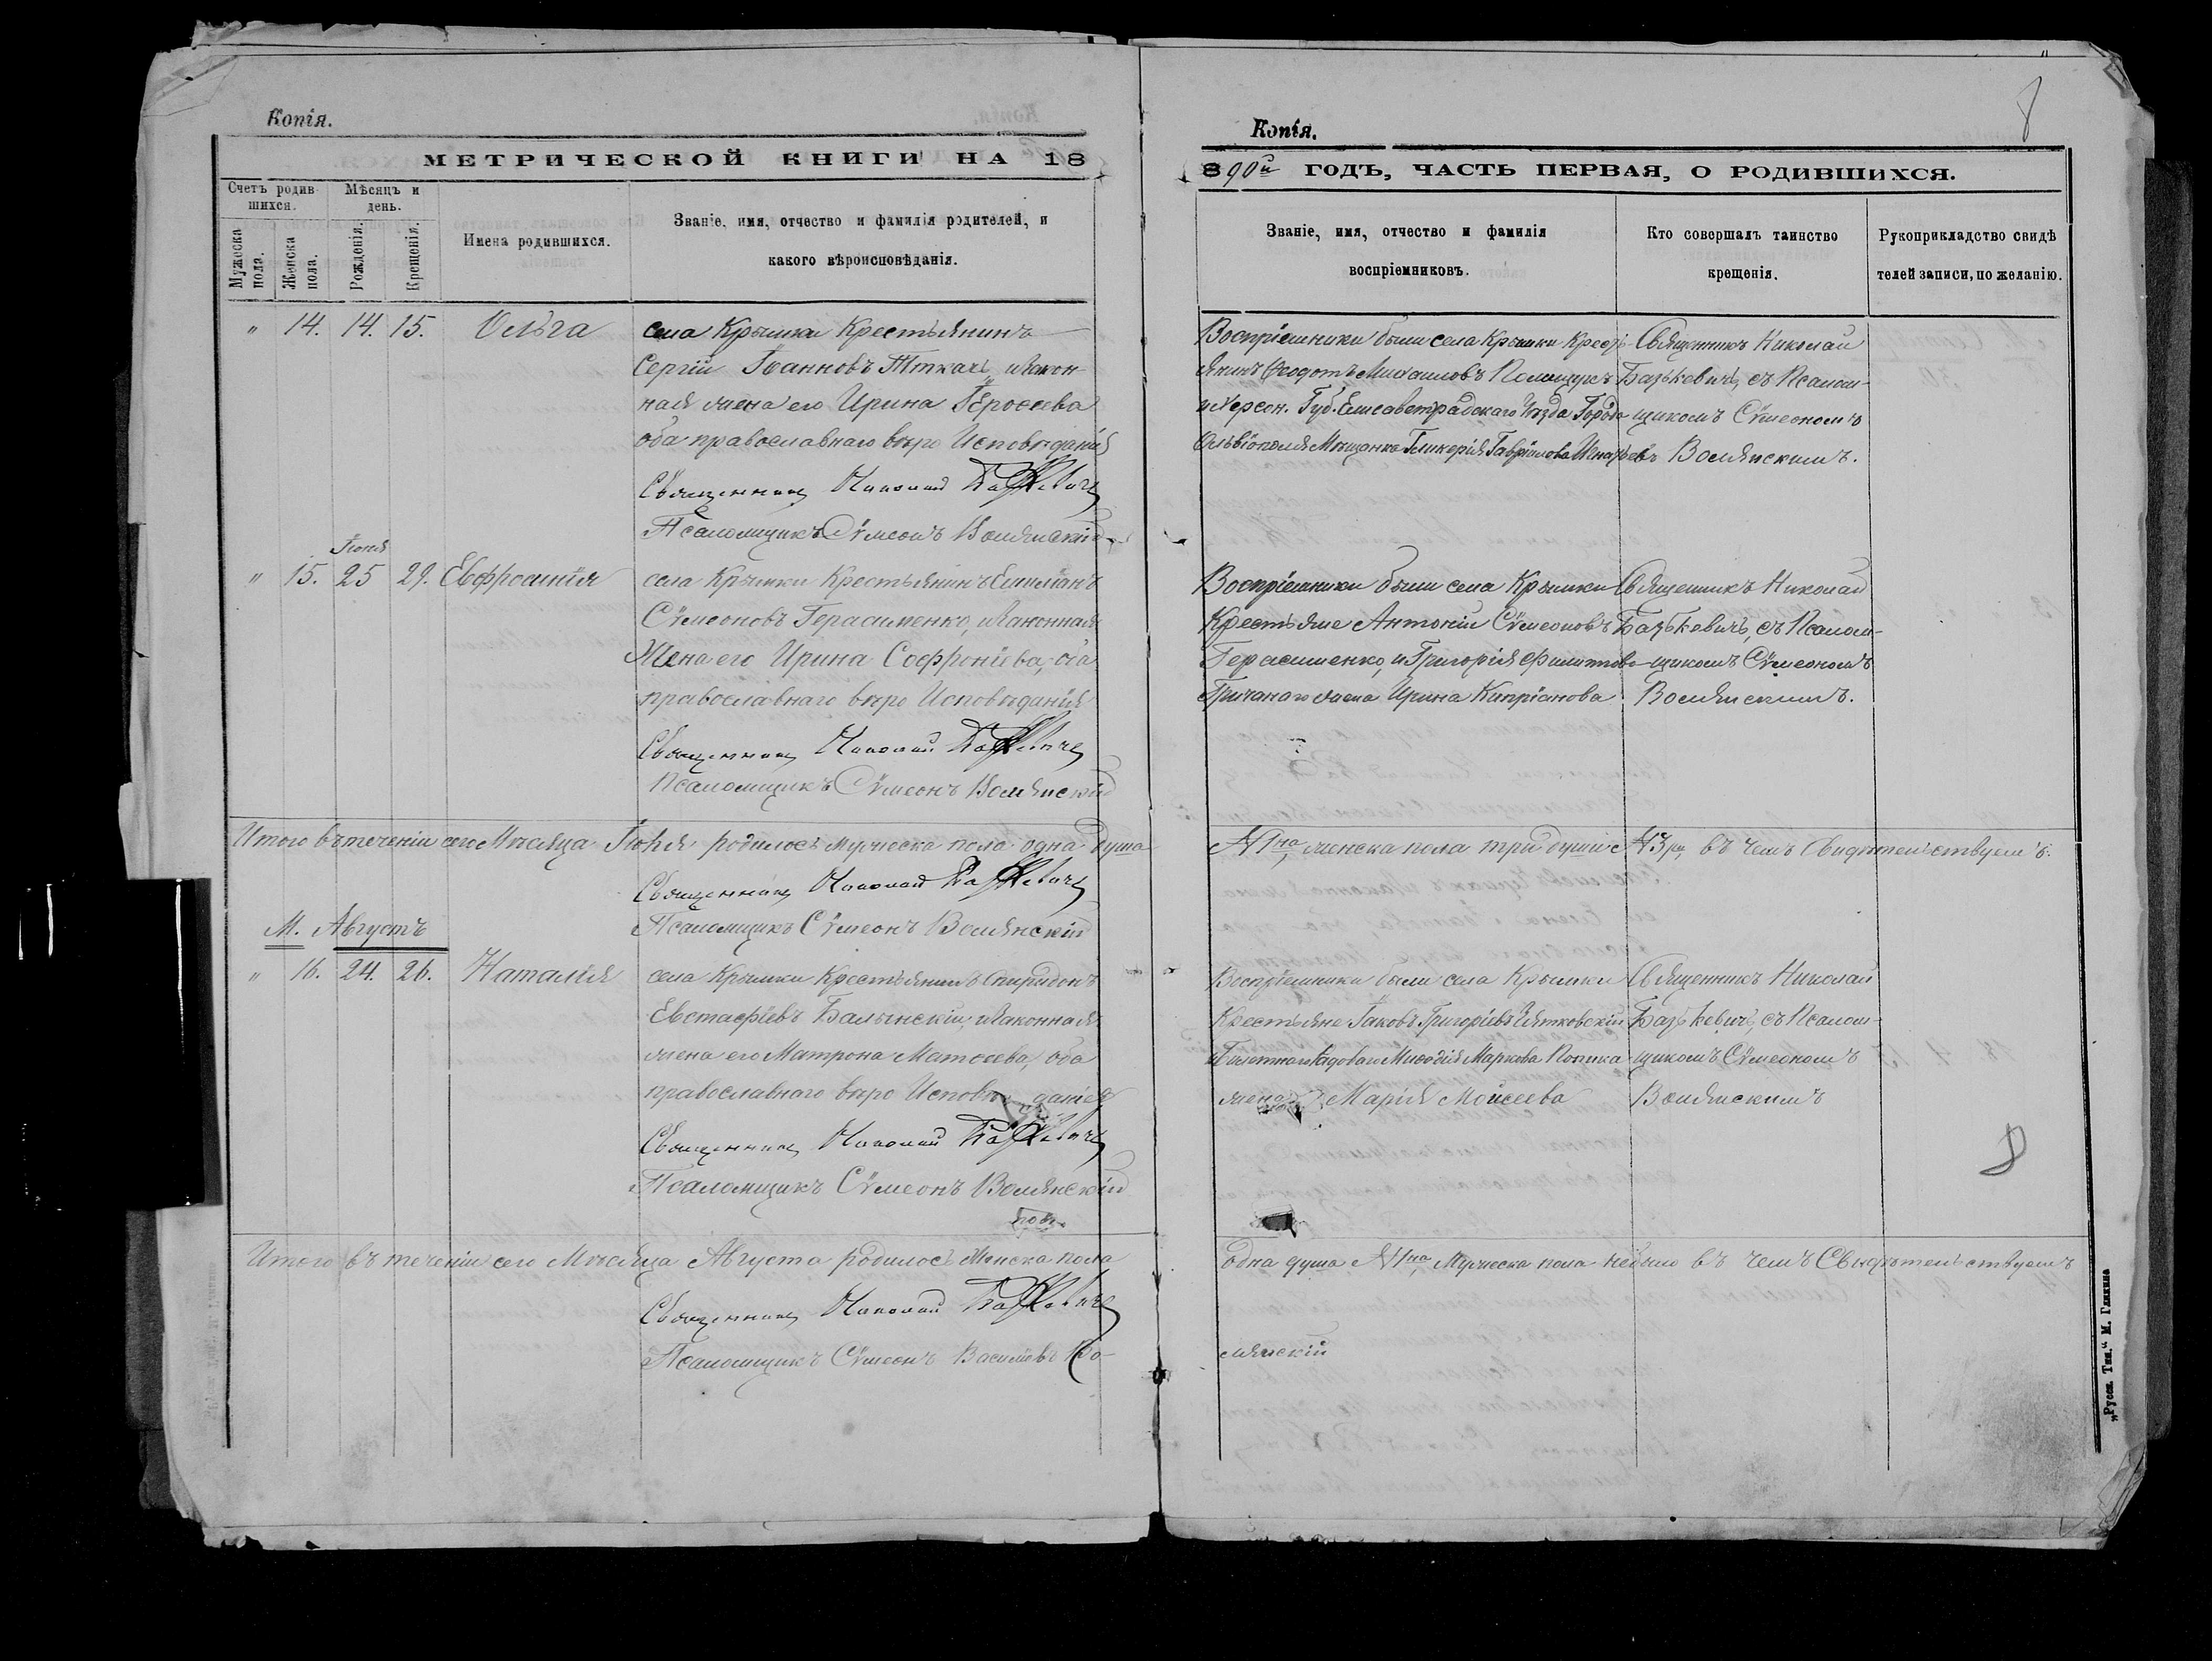 Копія.
МЕТРИЧЕСКОЙ КНИГИ НА 18
Счетъ родив
шихся.
Мѣсяцъ и
день.
Мужеска
пола.
Женска
пола.
Рожденія.
Крещенія.
Имена родившихся.
Званіе, имя, отчество и фамилія родителей, и
какого вѣроисповѣданія.
" 14. 14. 15. Ольга
села Крымки Крестьянинъ
Сергій Іоанновъ Ткачъ, и закон-
ная жена его Ирина
оба православнаго вѣро Исповѣданія
Священникъ Николай Базькевичъ
Псаломщикъ Сѵмеонъ Волянскій
Іюля
" 15. 25 29. Евфросинія
села Крымки Крестьянинъ Емиліанъ
Сѵмеоновъ Герасименко, и законная
Жена его Ирина Софроніева, оба
православнаго вѣро Исповѣданія
Священникъ Николай Базькевичъ
Псаломщикъ Сѵмеонъ Волянскій
Итого въ теченіи сего Мѣсяца Іюля родилось мужеска пола одна душа
Священникъ Николай Базькевичъ
Псаломщикъ Сѵмеонъ Волянскій
М. Августъ
" 16. 24. 26. Наталія
села Крымки Крестьянинъ Спиридонъ
Евстафіевъ Балынскій, и законная
жена его Матрона Матѳеева, оба
православнаго вѣро Исповѣ данія
Священникъ Николай Базькевичъ
Псаломщикъ Сѵмеонъ Волянскій
Итого въ теченіи сего Мѣсяца Августа родилось Женска пола
Священникъ Николай Базькевичъ
Псаломщикъ Сѵмеонъ Василіевъ Во-
8
Копія.
890й ГОДЪ, ЧАСТЬ ПЕРВАЯ, О РОДИВШИХСЯ.
Званіе, имя, отчество и фамилія
воспріемниковъ.
Кто совершалъ таинство
крещенія.
Рукоприкладство свидѣ
телей записи, по желанію.
Воспріемники были села Крымки Кресть
янинъ Ѳеодотъ Михаиловъ Полищукъ
и Херсон. Губ. Елисаветградскаго Уѣзда Города
Ольвіополя Мѣщанка Гликерія Гавріилова
Священникъ Николай
Базькевичъ, съ Псалом-
щикомъ Сѵмеономъ
Волянскимъ.
Воспріемники были села Крымки
Крестьяне Антоній Сѵмеоновъ
Герасименко, и Григорія Филиппова
жена Ирина Кипріанова
Священникъ Николай
Базькевичъ, съ Псалом-
щикомъ Сѵмеономъ
Волянскимъ.
№ 1на, женска пола три души № 3ри, въ чемъ Свидѣтельствуемъ.
Воспріемники были села Крымки
Крестьяне Іаковъ Григоріевъ
Маркова
жена Марія Моисеева
Священникъ Николай
Базькевичъ, съ Псалом-
щикомъ Сѵмеономъ
Волянскимъ
8
одна душа № 1на, Мужеска пола небыло въ чемъ Свидѣтельствуемъ
лянскій
„Русск. Тип.“ М. Гликина